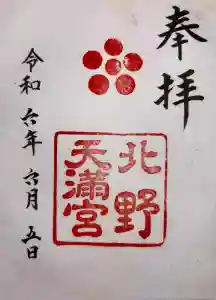 奉拝
北野
天満宮
令和六年六月五日